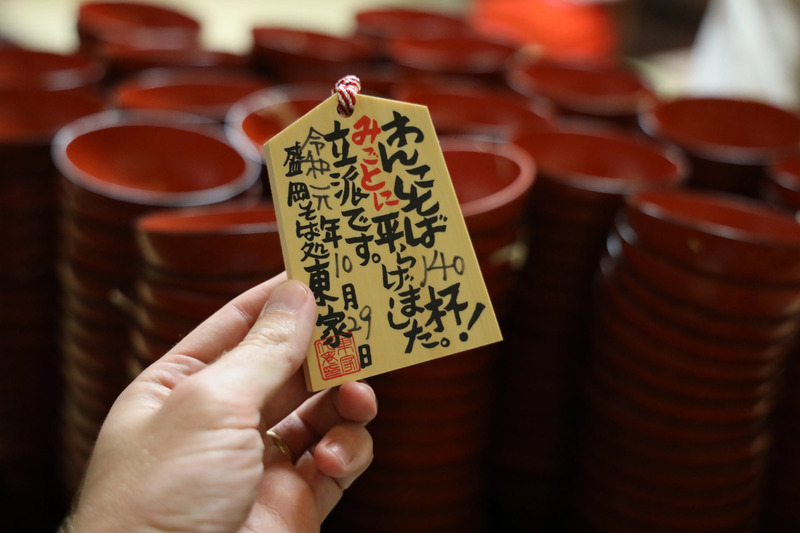 わんこそば140杯!
みごとに平らげました。
立派です。
令和元年10月29日
盛岡そば処東家